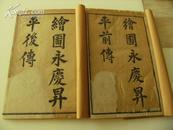 繪圖永慶昇
平前傳
繪圖永慶昇
平後傳